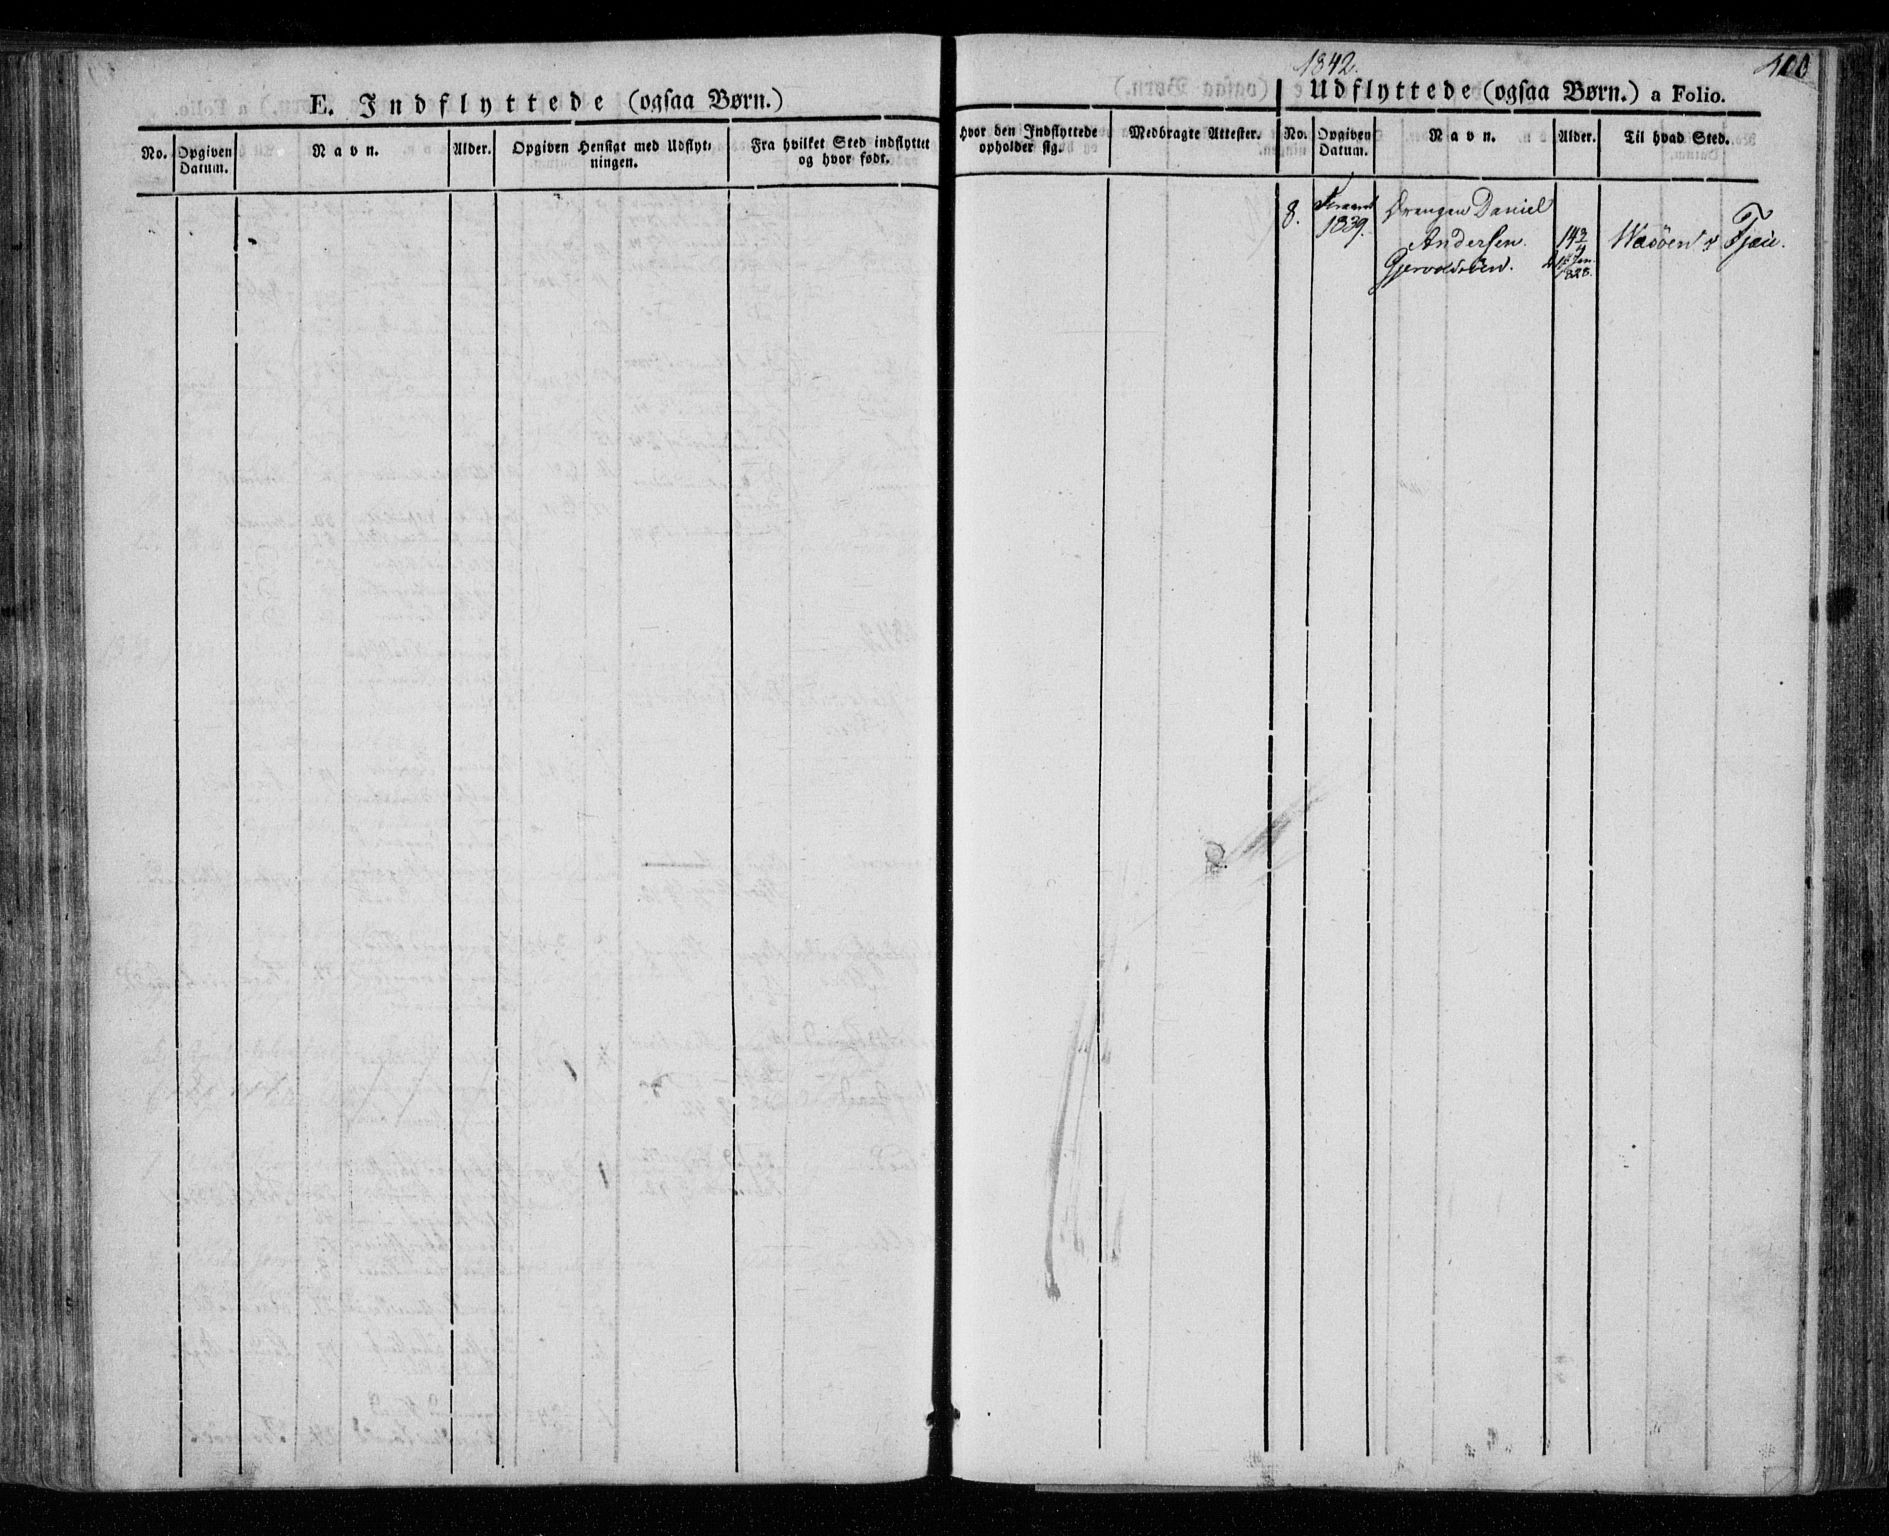 E. Indflyttede (ogsaa Børn.)
No.
Opgiven
Datum.
Navn.
Alder.
Opgiven Hensigt med Udflyt-
ningen.
Fra hvilket Sted indflyttet
og hvor født.
Hvor den Indflyttede
opholder sig.
Medbragte Attester.
1842.
400
Udflyttede (ogsaa Børn.) a Folio.
No.
Opgiven
Datum.
Navn.
Alder.
Til hvad Sted.
8.
1839.
Drengen Daniel
Andersen
14 3/4
Jan.
1828.